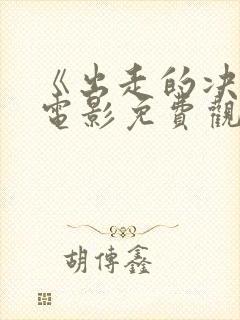 《出走的决
電影免費觀
胡傳鑫